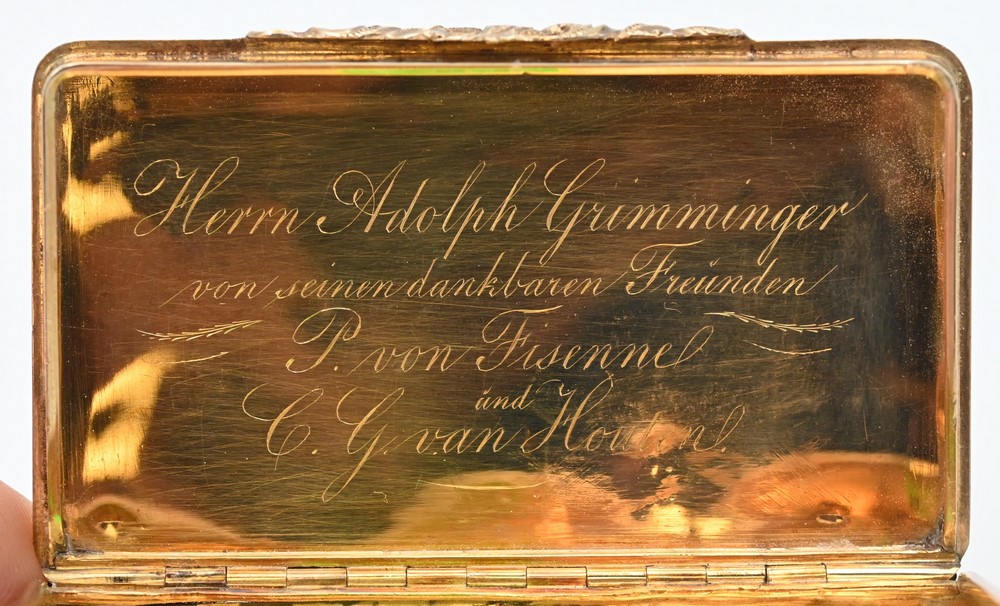 Herrn Adolph Grimminger
von seinen dankbaren Freünden
P. von Fisenne
ünd
C. G. van Houten.